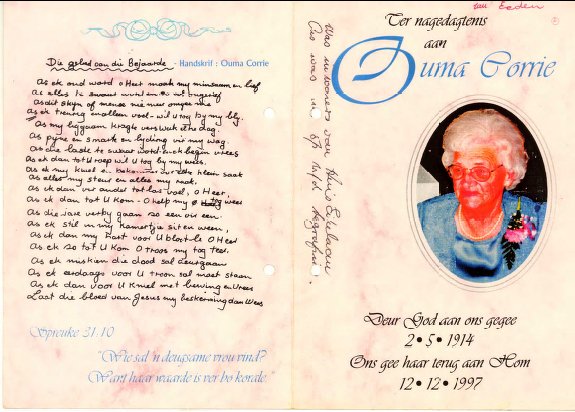 Die gebed van die Bejaarde - Handskrif : Ouma Corrie
As ek oud word o Heer maak my minsaam en lief
As alles te swaar word en
As dit skyn of mense nie meer omgee nie
As ek treurig en alleen voel wil U tog by my bly.
As my liggaam kragte verswak elke dag.
As pyne en smart en lyding vir my wag.
As die laste te swaar word en ek begin vrees
As ek dan tot U roep wil U tog by my wees.
As ek my kniel en
As alles my steur en alles my raak.
As ek dan ver ander tot las voel, o Heer,
As ek dan tot U kom - O help my wees
As die jare verby gaan so een vir een
As ek stil in my kamertjie sit en ween,
As ek dan my hart voor U blootlê O Heer
As ek so tot U kom O troos my tog teer.
As ek miskien die dood sal deurgaan
As ek eerdaags voor U troon sal moet staan
As ek dan voor U kniel met bewing en vrees
Laat die bloed van Jesus my beskerming dan wees
Spreuke 31:10
"Wie sal 'n deugsame vrou vind?
Want haar waarde is ver bo korale."
Was inwoners van Huis Eikelaan
Cas was in
van Eeden
Ter nagedagtenis
aan
Ouma Corrie
Deur God aan ons gegee
2 • 5 • 1914
Ons gee haar terug aan Hom
12 • 12 • 1997